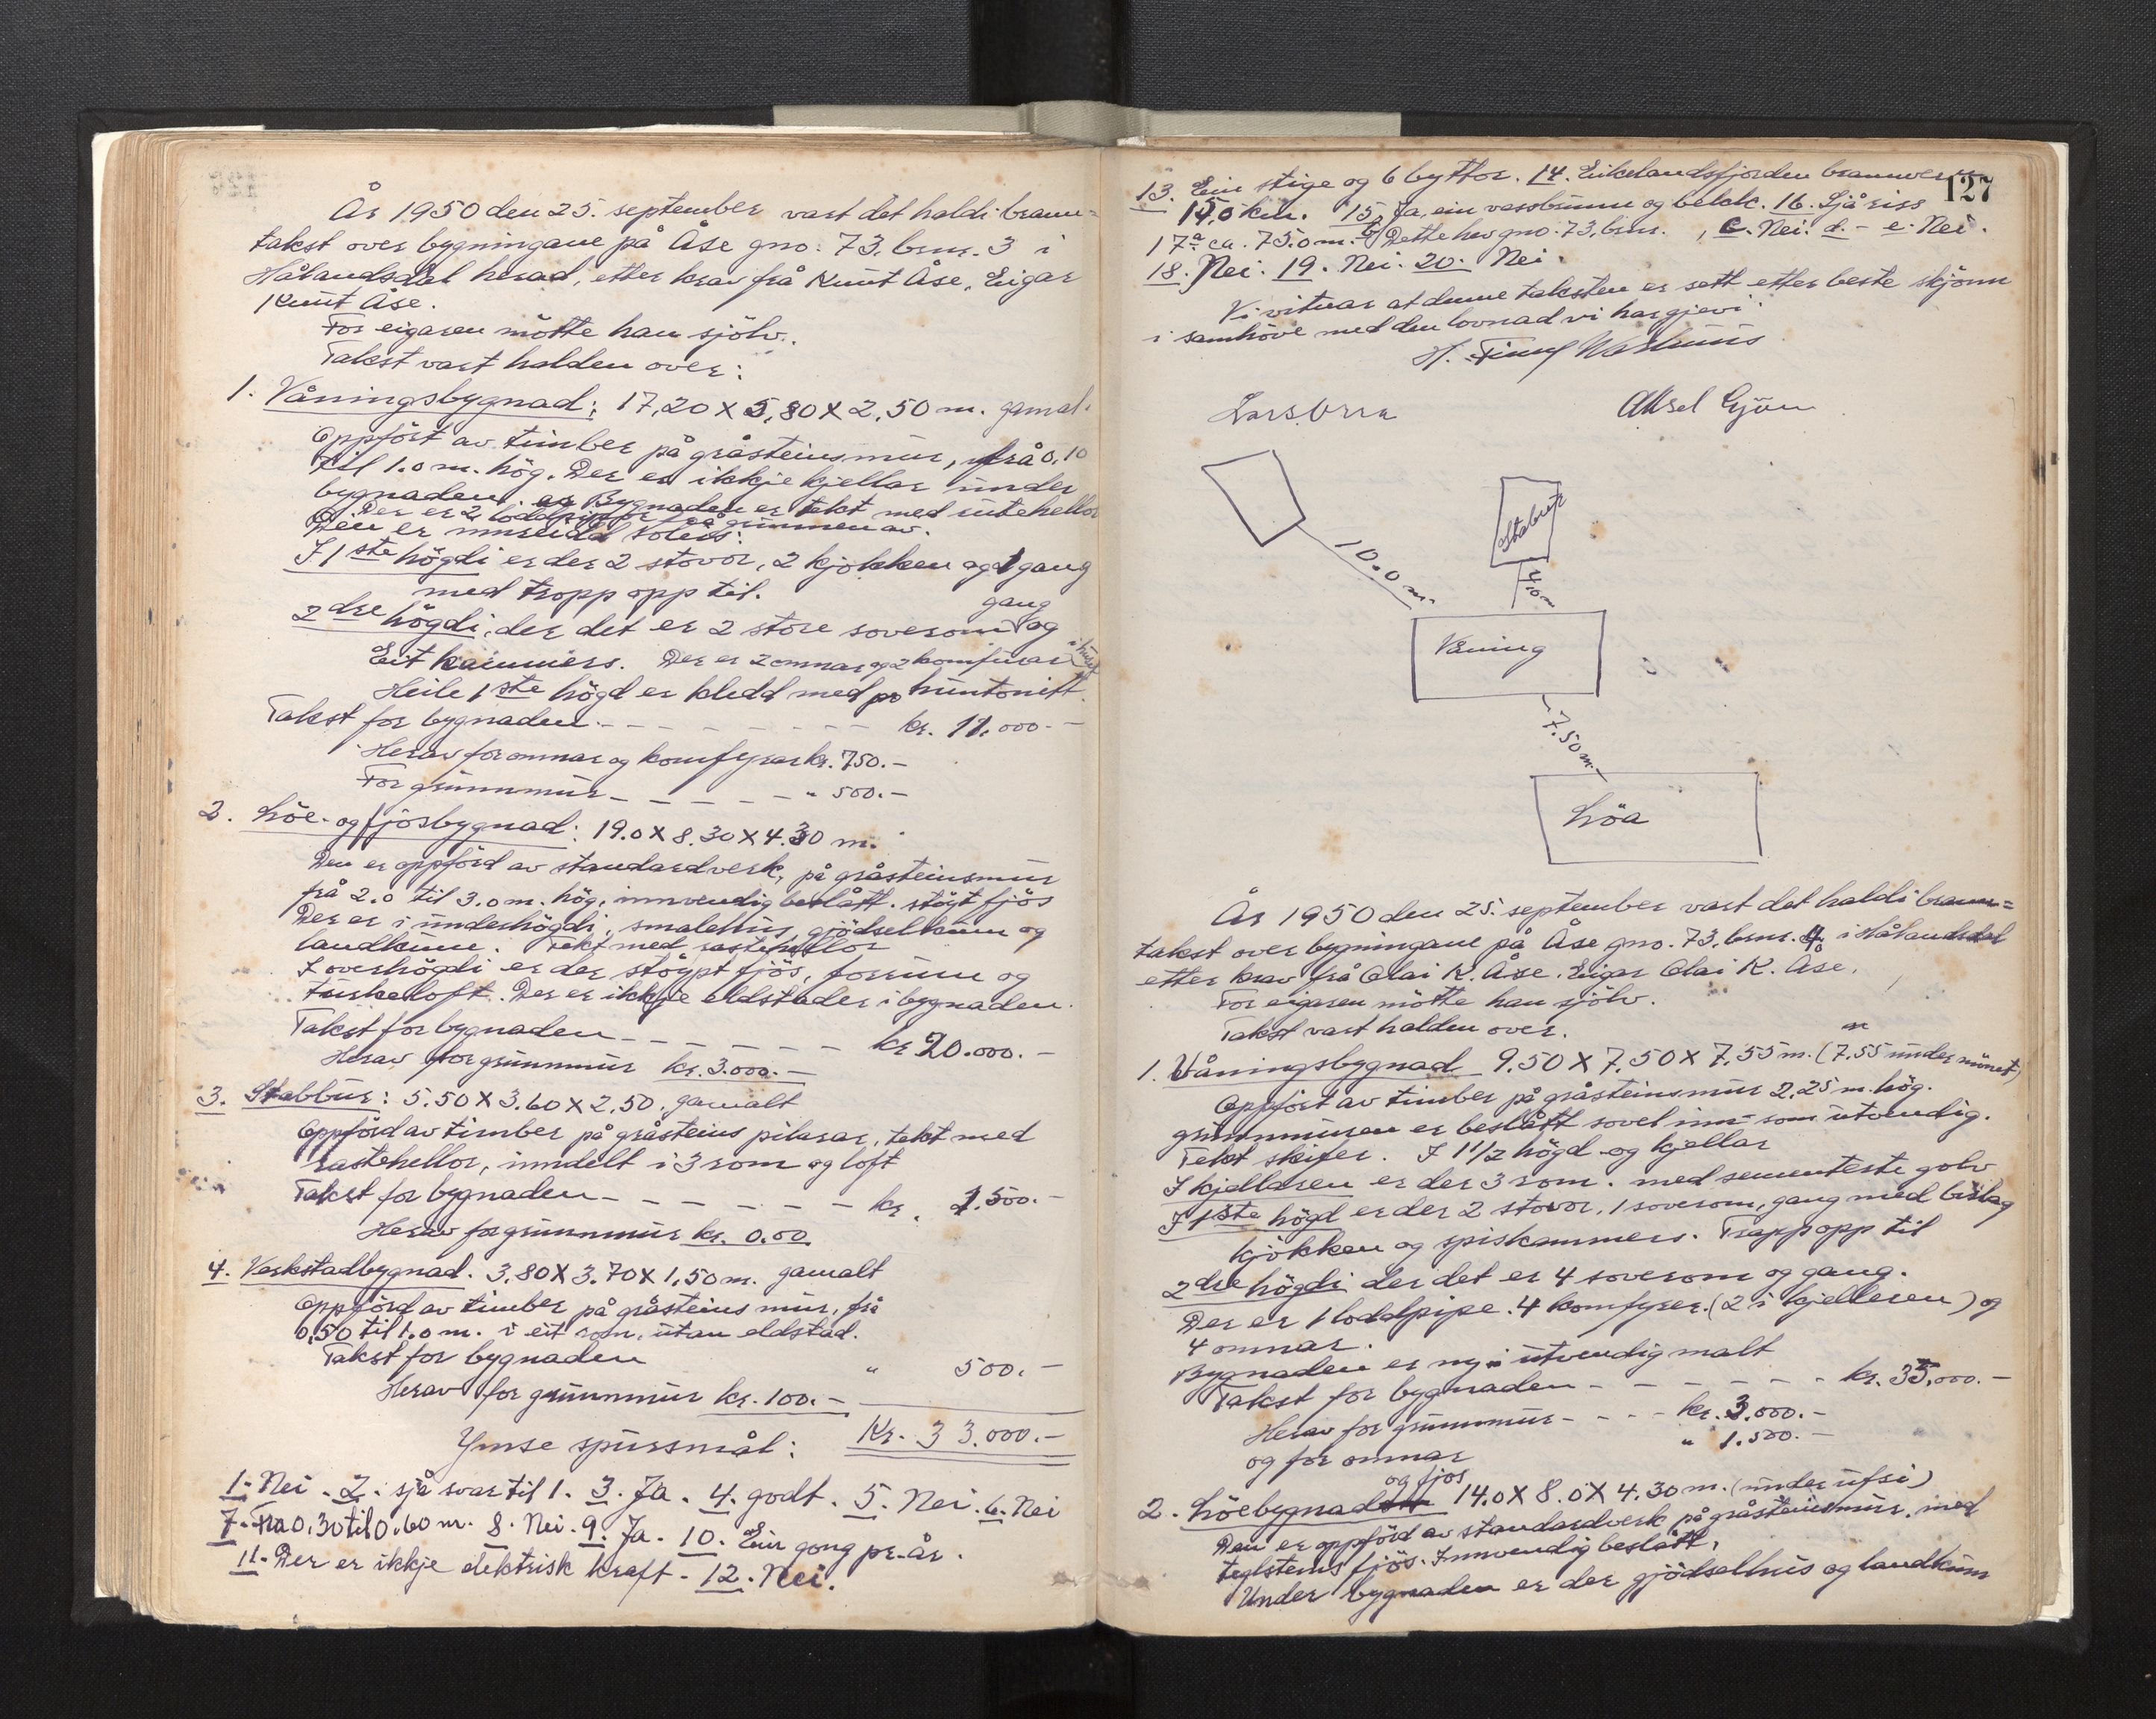 År 1950 den 25. september vart det haldi brann=
takst over bygningane på Åse gno: 73, brnr. 3 i
Hålandsdal herad, etter krav frå Knut Åse, Eigar
Knut Åse.
For eigaren mötte han sjölv.
Takst vart halden over:
1. Våningsbygnad: 17,20 X 5,80 X 2,50 m. gamal.
Oppfört av timber på gråsteinsmur, frå 0,10
til 1.0 m. hög. Der er ikkje kjellar under
bygnaden. Bygnaden er tekt med rutehellor
Der er 2 loddpipor på grunnen av.
Den er innreidd soleis:
I 1ste högdi er der 2 stovor, 2 kjökken og 1 gang
med tropp opp til.
2dre högdi, der det er 2 store soverom gang og
Eit kammers. Der er 2 omnar og 2 komfurar i huset
Heile 1ste högd er kledd med huntonitt.
Takst for bygnaden - - - - - - - kr. 11.000.-
Herav for omnar og komfyrar kr. 750.-
For grunnmur - - - - - " 500.-
2. Löe- og fjösbygnad: 19.0 X 8.30 X 4.30 m.
Den er oppförd av standardverk, på gråsteinsmur
frå 2.0 til 3.0 m. hög, innvendig beslått. stöpt fjös
Der er i underhögdi, smalehus, gjödselkum og
landkum. Tekt med rastehellor
I overhögdi er der stöypt fjös, forrum og
turkeloft. Der er ikkje eldstader i bygnaden.
Takst for bygnaden - - - - - - kr. 20.000.-
Herav for grunnmur kr. 3.000.-
3. Stabbur: 5.50 X 3.60 X 2.50. gamalt
Oppförd av timber på gråsteins pilarar, tekt med
rastehellor, inndelt i 3 rom og loft
Takst for bygnaden - - - - - - kr. 1.500.-
Herav for grunnmur kr. 0.00
4. Verkstadbygnad. 3.80 X 3.70 X 1,50 m. gamalt
Oppförd av timber på gråsteins mur, frå
0,50 til 1.0 m. i eit rom, utan eldstad.
Takst for bygnaden " 500.-
Herav for grunnmur kr. 100.-
Kr. 33.000.-
Ymse spursmål:
1. Nei. 2. sjå svar til 1. 3. Ja. 4. godt. 5. Nei. 6. Nei
7. Fra 0,30 til 0.60 m. 8. Nei. 9. Ja. 10. Ein gong pr. år.
11. Der er ikkje elektrisk kraft. 12. Nei.
127
13. Ein stige og 6 byttor. 14. Eikelandsfjorden brannvern
15,0 km. 15. Ja, ein vassbrunn og bekk. 16. Sjå riss
17 a ca. 75.0 m. b Dette hev gno. 73, brnr. , c. Nei. d. - e. Nei.
18. Nei. 19. Nei. 20. Nei.
Vi vitnar at denne taksten er sett etter beste skjönn
i samhöve med den lovnad vi har gjevi.
H. Finny
Lars Aksel Gjön
Stabur
10.0 m.
4,0 m
Våning
7.50 m.
Löa
År 1950 den 25. september vart det haldi brann=
takst over bygningane på Åse gno. 73, brnr. 4 i Hålandsdal
etter krav frå Olai K. Åse. Eigar Olai K. Åse.
For eigaren mötte han sjölv.
Takst vart halden over.
1. Våningsbygnad 9.50 X 7,50 X 7,55 m. (7,55 under mönet)
Oppfört av timber på gråsteinsmur 2,25 m. hög.
grunnmuren er beslått sovel inn- som utvendig.
Tekt skifer. I 1 1/2 högd og kjellar
I kjellaren er der 3 rom. med sementerte golv
I 1ste högd er der 2 stovor, 1 soverom, gang med bislag
kjökken og spiskammers. Trapp opp til
2dre högdi der det er 4 soverom og gang.
Der er 1 loddpipe. 4 komfyrer. (2 i kjelleren) og
4 omnar.
Bygnaden er ny utvendig malt
Takst for bygnaden - - - - - - kr. 35,000.-
Herav for grunnmur - - - kr. 3.000.-
og for omnar " 1.500.-
2. Löebygnad og fjos 14.0 X 8.0 X 4.30 m. (under ufsi)
Den er oppförd av standardverk på gråsteinsmur, med
teglsteins fjös. Innvendig beslått,
Under bygnaden er der gjödselhus og landkum